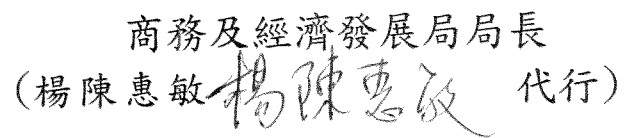 商務及經濟發展局局長
(楊陳惠敏 楊陳惠敏 代行)